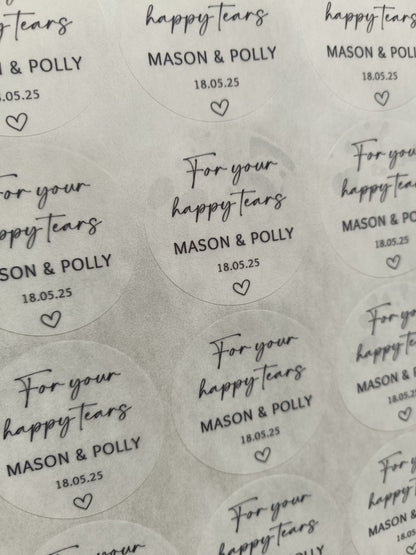 happy tears
MASON & POLLY
18.05.25
happy tears
MASON & POLLY
18.05.25
happy tears
MASON & POLLY
18.05.25
For your
happy tears
MASON & POLLY
18.05.25
For your
happy tears
MASON & POLLY
18.05.25
For your
happy tears
MASON & POLLY
18.05.25
For your
happy tears
MASON & POLLY
18.05.25
For your
happy tears
MASON & POLLY
18.05.25
For your
happy tears
MASON &
18.05.25
For your
happy tears
For your
happy tears
MASON &
18.05